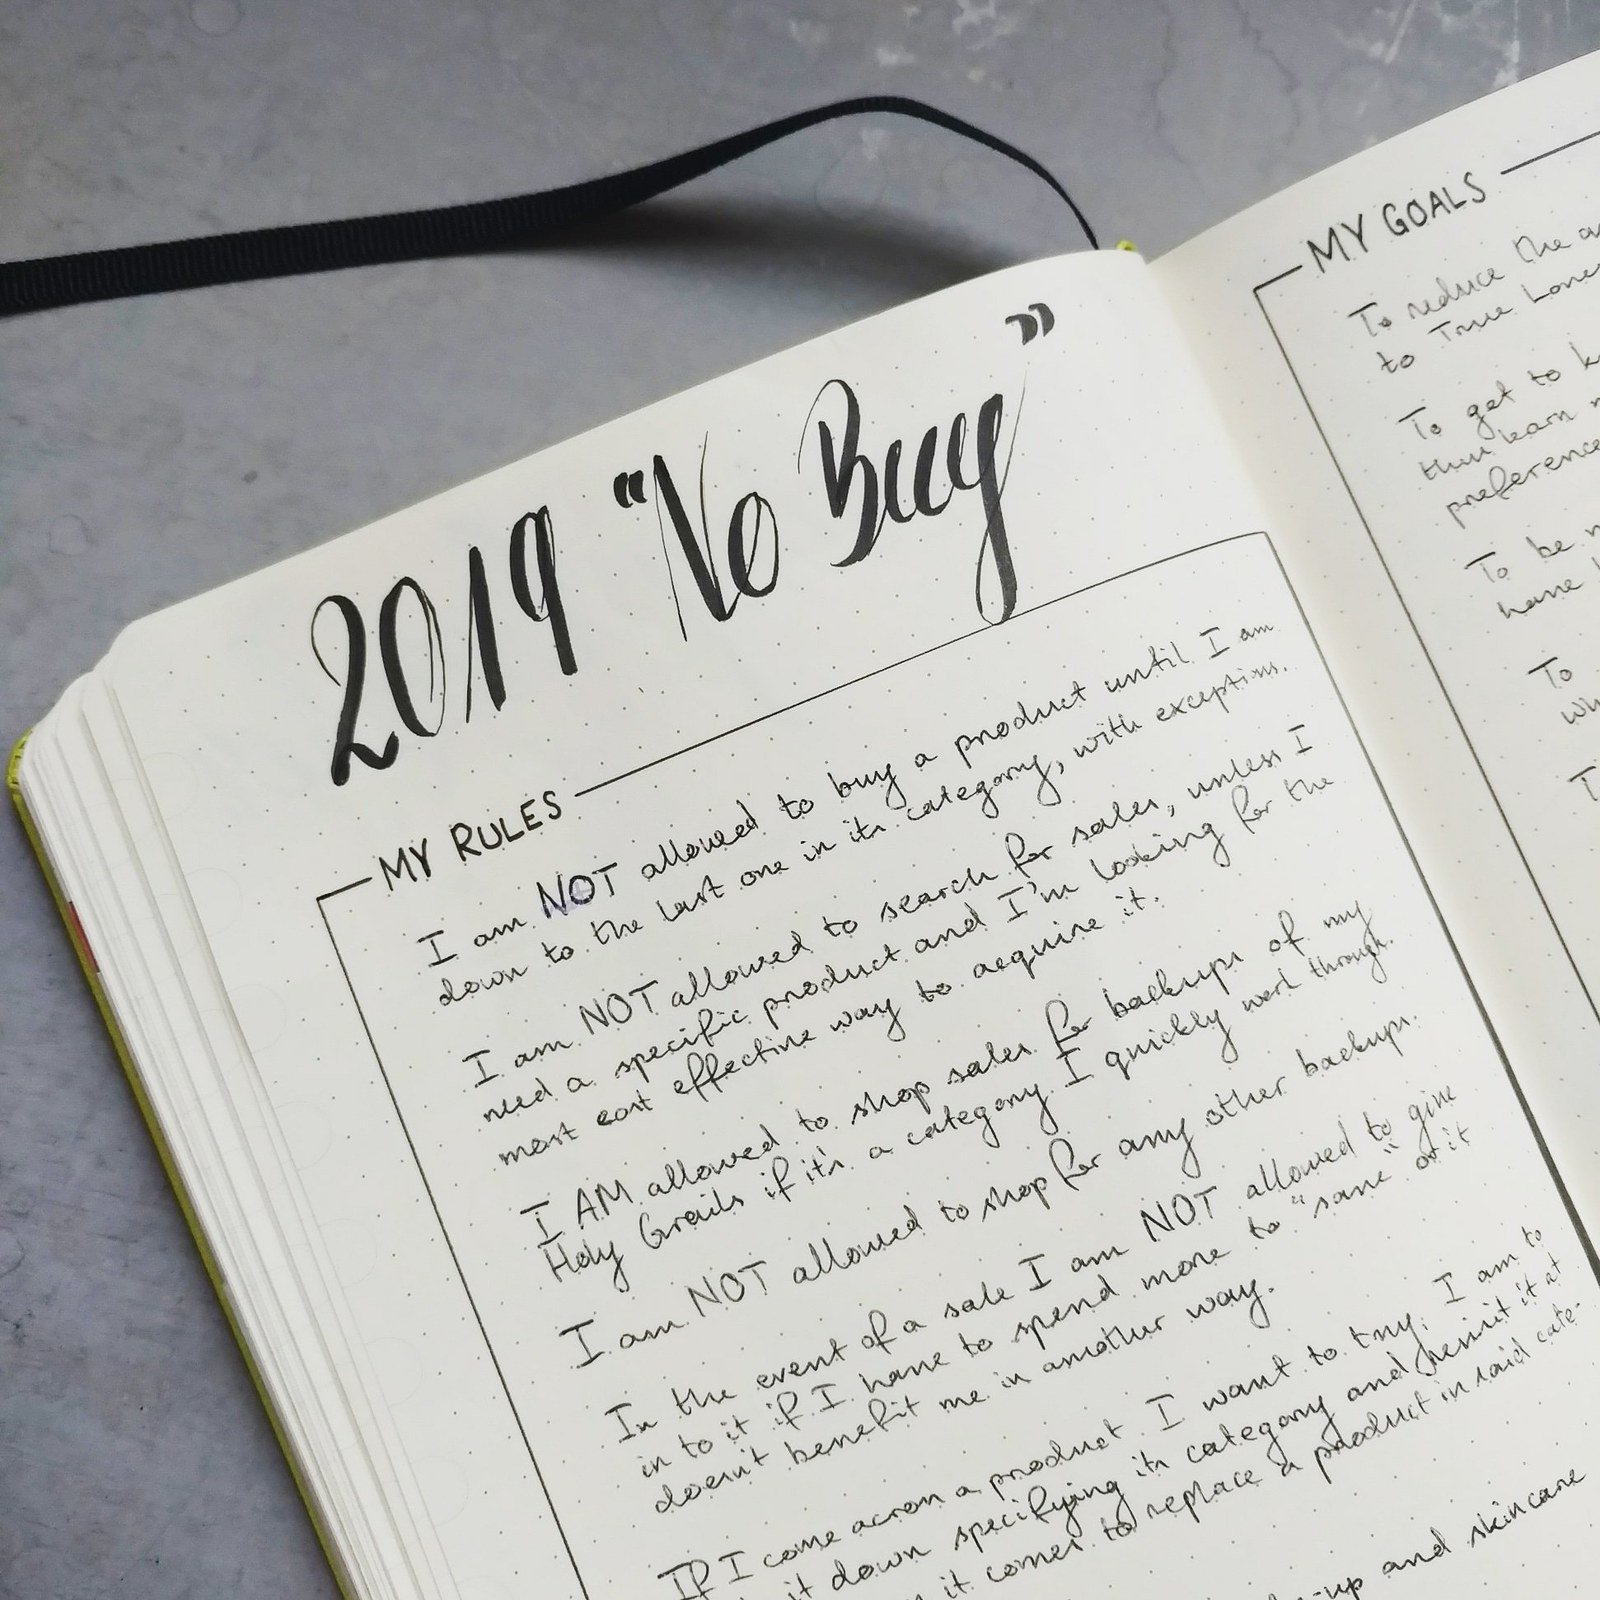 2019 "No Buy"
MY RULES
I am NOT allowed to buy a product until I am
down to the last one in its category, with exceptions.
I am NOT allowed to search for sales, unless I
need a specific product and I'm looking for the
most cost effective way to acquire it.
I AM allowed to shop sales for backups of my
Holy Grails if it's a category I quickly work through.
I am NOT allowed to shop for any other backups.
In the event of a sale I am NOT allowed to give
in to it if I have to spend more to "save" or it
doesn't benefit me in another way.
If I come across a product I want to try, I am to
it down specifying its category and revisit it at
it comes to replace a product in said cate-
-up and skincare
MY GOALS
To reduce the
to True Love
To get to
then learn
preference
To be
have
To